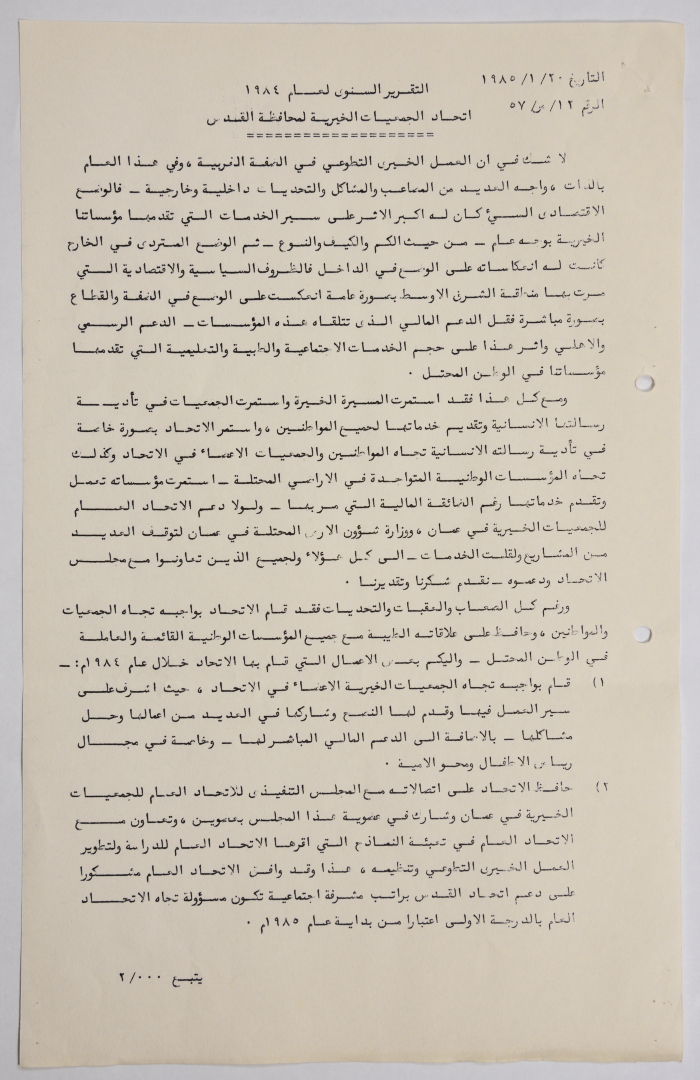 التاريخ ٢٠/ ١/ ١٩٨٥
الرقم ١٢/ س/ ٥٧
التقرير السنوى لعام ١٩٨٤
اتحاد الجمعيات الخيرية لمحافظة القدس
===================
لا شك في ان العمل الخيرى التطوعي في الضفة الغربية ، وفي هذا العام
بالذات ، واجه العديد من المصاعب والمشاكل والتحديات داخلية وخارجية – فالوضع
الاقتصادى السيء كان له اكبر الاثر على سير الخدمات التي تقدمها مؤسساتنا
الخيرية بوجه عام – من حيث الكم والكيف والنوع – ثم الوضع المتردى في الخارج
كانت له انعكاساته على الوضع في الداخل فالظروف السياسية والاقتصادية التي
مرت بها منطقة الشرق الاوسط بصورة عامة انعكست على الوضع في الضفة والقطاع
بصورة مباشرة فقل الدعم المالي الذى تتلقاه هذه المؤسسات – الدعم الرسمي
والاهلي واثر هذا على حجم الخدمات الاجتماعية والطبية والتعليمية التي تقدمها
مؤسساتنا في الوطن المحتل .
ومع كل هذا فقد استمرت المسيرة الخيرة واستمرت الجمعيات في تأديــة
رسالتها الانسانية وتقديم خدماتها لجميع المواطنين ، واستمر الاتحاد بصورة خاصة
في تأدية رسالته الانسانية تجاه المواطنين والجمعيات الاعضاء في الاتحاد وكذلك
تجاه المؤسسات الوطنية المتواجدة في الاراضي المحتلة – استمرت مؤسساته تعمل
وتقدم خدماتها رغم الضائقة المالية التي مر بها – ولولا دعم الاتحاد العـــام
للجمعيات الخيرية في عمان ، ووزارة شؤون الارض المحتلة في عمان لتوقف العديــد
من المشاريع ولقلت الخدمات – الى كل هؤلاء ولجميع الذين تعاونوا مع مجلس
الاتحاد ودعموه – نقدم شكرنا وتقديرنا .
ورغم كل الصعاب والعقبات والتحديات فقد قام الاتحاد بواجبه تجاه الجمعيات
والمواطنين ، وحافظ على علاقاته الطيبة مع جميع المؤسسات الوطنية القائمة والعاملة
في الوطن المحتل – واليكم بعض الاعمال التي قام بها الاتحاد خلال عام ١٩٨٤م: –
١) قام بواجبه تجاه الجمعيات الخيرية الاعضاء في الاتحاد ، حيث اشرف على
سير العمل فيها وقدم لها النصح وشاركها في العديد من اعمالها وحل
مشاكلها – بالاضافة الى الدعم المالي المباشر لها – وخاصة في مجــال
رياض الاطفال ومحو الامية .
٢) حافظ الاتحاد على اتصالاته مع المجلس التنفيذى للاتحاد العام للجمعيــات
الخيرية في عمان وشارك في عضوية هذا المجلس بعضوين ، وتعاون مـــع
الاتحاد العام في تعبئة النماذج التي اقرها الاتحاد العام للدراسة ولتطوير
العمل الخيرى التطوعي وتنظيمه ، هذا وقد وافق الاتحاد العام مشـكورا
على دعم اتحاد القدس براتب مشرفة اجتماعية تكون مسؤولة تجاه الاتحــاد
العام بالدرجة الاولى اعتبارا من بداية عام ١٩٨٥م .
يتبـع ٢/٠٠٠